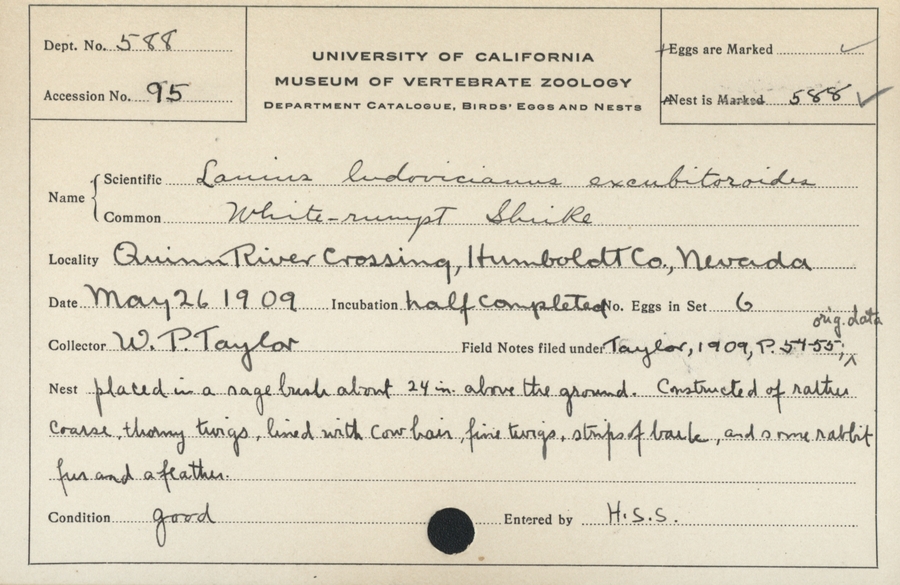 Dept. No. 588
Accession No. 95
UNIVERSITY OF CALIFORNIA
MUSEUM OF VERTEBRATE ZOOLOGY
DEPARTMENT CATALOGUE, BIRDS' EGGS AND NESTS
Eggs are Marked ✓
Nest is Marked 588 ✓
Name
Scientific Lanius ludovicianus excubitoroides
Common White-rumpt Shrike
Locality Quinn River Crossing, Humboldt Co., Nevada
Date May 26 1909 Incubation half completed No. Eggs in Set 6
orig. data
Collector W. P. Taylor Field Notes filed under Taylor, 1909, P. 54-55;
Nest placed in a sage bush about 24 in. above the ground. Constructed of rather
coarse, thorny twigs, lined with cow hair, fine twigs, strips of bark, and some rabbit
fur and a feather.
Condition good Entered by H.S.S.